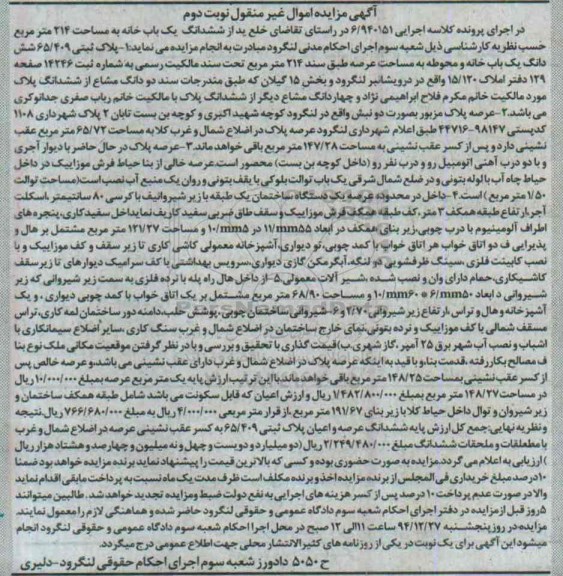 آگهی مزایده اموال غیر منقول نوبت دوم
در اجرای پرونده کلاسه اجرایی ۶/۹۴۰۱۵۱ در راستای تقاضای خلع ید از ششدانگ یک باب خانه به مساحت ۲۱۴ متر مربع
حسب نظریه کارشناسی ذیل شعبه سوم اجرای احکام مدنی لنگرود مبادرت به انجام مزایده می نماید: ۱-پلاک ثبتی ۶۵/۴۰۹ شش
دانگ یک باب خانه و محوطه به مساحت عرصه طبق سند ۲۱۴ متر مربع تحت سند مالکیت رسمی به شماره ثبت ۱۴۲۴۶ صفحه
۱۲۹ دفتر املاک ۱۵/۱۲۰ واقع در درویشانبر لنگرود و بخش ۱۵ گیلان که طبق مندرجات سند دو دانگ مشاع از ششدانگ پلاک
مورد مالکیت خانم مکرم فلاح ابراهیمی نژاد و چهاردانگ مشاع دیگر از ششدانگ پلاک با مالکیت خانم رباب صفری جداتوکری
می باشد.۲-عرصه پلاک مزبور بصورت دو نبش واقع در لنگرود کوچه شهید اکبری و کوچه بن بست تابان ۲ پلاک شهرداری ۱۱۰۸
کدپستی ۹۸۱۴۷-۴۴۷۱۶ طبق اعلام شهرداری لنگرود عرصه پلاک در اضلاع شمال و غرب کلا به مساحت ۶۵/۷۲ متر مربع عقب
نشینی دارد و پس از کسر عقب نشینی به مساحت ۱۴۷/۲۸ متر مربع باقی خواهد ماند.۳-عرصه پلاک در حال حاضر با دیوار آجری
و با دو درب آهنی اتومبیل رو و درب نفر رو (داخل کوچه بن بست) محصور است.عرصه خالی از بنا حیاط فرش موزاییک در داخل
حیاط چاه آب با لوله بتونی و در ضلع شمال شرقی یک باب توالت بلوکی با سقف بتونی و روان یک منبع آب نصب است(مساحت توالت
۱/۵۰ متر مربع) است.۴-داخل در محدوده عرصه یک دستگاه ساختمان یک طبقه با زیر شیروانیف با کرسی ۸۰ سانتیمتر ،اسکلت
آجر،ارتفاع طبقه همکف ۳ متر،کف طبقه همکف فرش موزاییک و سقف طاق ضربی سفید کاریف نما یداخل سفید کاری،پنجره های
اطراف آلومینیوم با درب چوبی،زیر بنای همکف در ابعاد ۱۱/mm۵۵ در ۱۰/mm۵ و مساحت ۱۲۱/۲۷ متر مربع مشتمل بر هال و
پذیرایی ف دو اتاق خواب هر اتاق خواب با کمد چوبی،تو دیواری،آشپزخانه معمولی کاشی کاری تا زیر سقف و کف موزاییک و با
نصب کابینت فلزی ،سینگ ظرفشویی دو لنگه،آبگرمکن گازی دیواری،سرویس بهداشتی با کف سرامیک دیوارهای تا زیر سقف
کاشیکاری،حمام دارای وان و نصب شده ،شیر آلات معمولی.۵-از داخل هال راه پله با نرده فلزی به سمت زیر شیروانی که زیر
شیروانی د ابعاد ۶/mm۵۰ ۱۰/mm۶۰ و مساحت ۶۸/۹۰ متر مربع مشتمل بر یک اتاق خواب با کمد چوبی دیواری ،و یک
آشپزخانه و هال و تراس ،ارتفاع زیر شیروانی ۲/۷۰ و ۶-شیروانی ساختمان چوبی،پوشش حلب،دامنه دور ساختمان لمه کاری،تراس
مسقف شمالی با کف موزاییک و نرده بتونی.نمای خارج ساختمان در اضلاع شمال و غرب سنگ کاری ،سایر اضلاع سیمانکاری با
اشباب و نصب آب شهر برق ۲۵ آمپر ،گاز شهری.ب)قیمت گذاری با تحقیق و بررسی و با در نظر گرفتن موقعیت مکانی ملک نوع بنا
ف مصالح بکاررفته ،قدمت بنا،و با قید به اینکه عرصه پلاک در اضلاع شمال و غرب دارای عقب نشینی می باشد،و عرصه خالص پس
از کسر عقب نشینی بمساحت ۱۴۸/۲۵ متر مربع باقی خواهد ماند،با این ترتیب ارزش پایه یک متر مربع عرصه بمبلغ ۱۰/۰۰۰/۰۰۰ ریال
در مساحت ۱۴۸/۲۷ متر مربع بمبلغ ۱/۴۸۲/۸۰۰/۰۰۰ ریال و ارزش اعیان که قابل سکونت می باشد شامل طبقه همکف ساختمان و
زیر شیروان و توال داخل حیاط کلا با زیر بنای ۱۹۱/۶۷ متر مربع ،از قرار متر مربعی ۴/۰۰۰/۰۰۰ ریال به مبلغ ۷۶۶/۶۸۰/۰۰۰ ریال.نتیجه
و نظریه نهایی:جمع کل ارزش پایه ششدانگ عرصه و اعیان پلاک ثبتی ۶۵/۴۰۹ به کسر عقب نشینی عرصه در اضلاع شمال و غرب
با مطعلقات و ملحقات ششدانگ مبلغ ۲/۲۴۹/۴۸۰/۰۰۰ ریال (دو میلیارد و دویست و چهل و نه میلیون و چهارصد و هشتاد هزار ریال
)ارزیابی به اعلام می گردد.مزایده به صورت حضوری بوده و کسی که بالاترین قیمت را پیشنهاد نماید برنده مزایده خواهد بود ضمنا
۱۰درصد مبلغ خریداری فی المجلس از برنده مزایده اخذ و برنده مکلف است ظرف مدت یک ماه نسبت به پرداخت مابقی اقدام نماید
والا در صورت عدم پرداخت ۱۰ درصد پس از کسر هزینه های اجرایی به نفع دولت ضبط و مزایده تجدید خواهد شد. طالبین میتوانند
۵روز قبل از مزایده در دفتر اجرای احکام شعبه سوم دادگاه عمومی و حقوقی لنگرود حاضر شده و هماهنگی لازم را معمول نمایند.
مزایده در روز پنجشنبه ۹۴/۱۲/۲۷ ساعت ۱۱الی ۱۲ صبح در محل اجرا احکام شعبه سوم دادگاه عمومی و حقوقی لنگرود انجام
میشود این آگهی برای یک نوبت در یکی از روزنامه های کثیرالانتشار محلی جهت اطلاع عمومی درج میگردد.
ح ۵۰۵۰ دادورز شعبه سوم اجرای احکام حقوقی لنگرود-دلیری